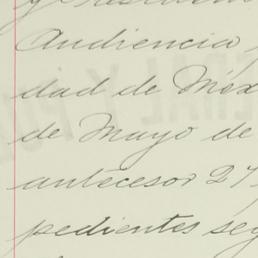 Audiencia
dad de Méx
de Mayo de
antecesor 27
pedientes seg